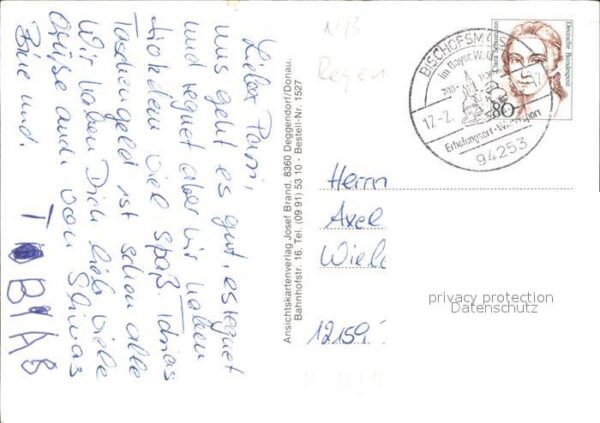 NB
Regen
Lieber Papi,
uns geht es gut, es regnet
und regnet aber wir haben
trotzdem viel spaß. Tobias
Taschengeld ist schon alle
Wir haben Dich lieb viele
Grüße auch von
und.
TOBIAS
Ansichtskartenverlag Josef Brand, 8360 Deggendorf/Donau,
Bahnhofstr. 16, Tel. (09 91) 53 10 - Bestell-Nr. 1527
BISCHOFSMAIS
Im Bayer. W
700-
17.-2.
Erholungsort - Wintersport
94253
Clara Schumann
Deutsche Bundespost
80
Herrn
Axel
12159
privacy protection
Datenschutz